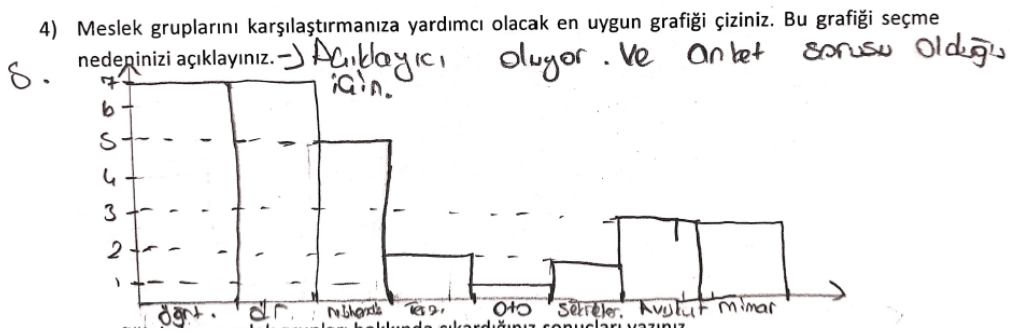 4) Meslek gruplarını karşılaştırmanıza yardımcı olacak en uygun grafiği çiziniz. Bu grafiği seçme
nedeninizi açıklayınız. → Açıklayıcı oluyor. Ve anket sorusu olduğu
için.
8.
7
6
5
4
3
2
1
öğrt. dr. mühendis Oto Sekreter Avukat mimar